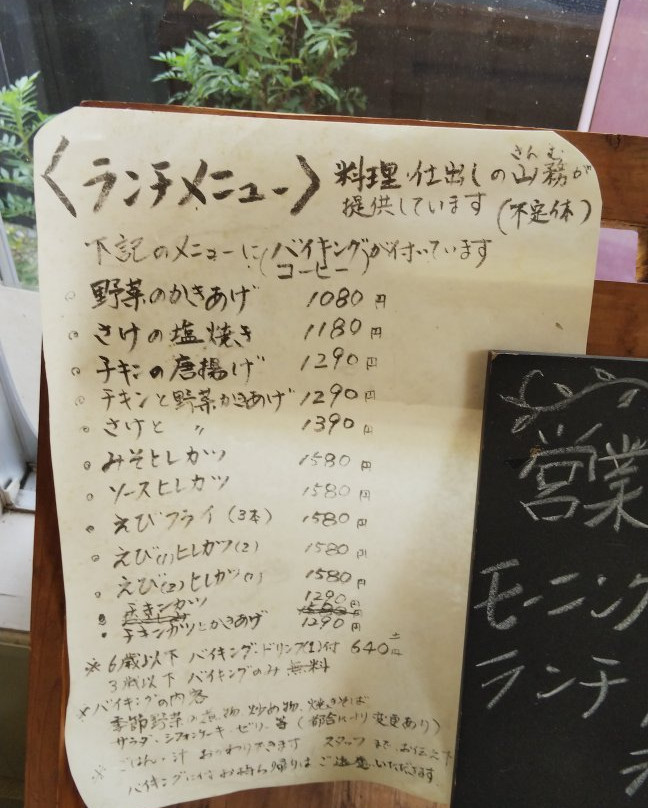 〈ランチメニュー〉
料理・仕出しの山務が
さんむ
提供しています (不定休)
下記のメニューに(バイキング コーヒー)が付いています
。野菜のかきあげ 1080円
。さけの塩焼き 1180円
。チキンの唐揚げ 1290円
。チキンと野菜かきあげ 1290円
。さけと 〃 1390円
。みそヒレカツ 1580円
。ソースヒレカツ 1580円
。えびフライ (3本) 1580円
。えび(1)ヒレカツ(2) 1580円
。えび(2)ヒレカツ(1) 1580円
・チキンカツ 1290円
・チキンカツとかきあげ 1290円
※6歳以下 バイキング・ドリンク(1)付 640円
3歳以下 バイキングのみ 無料
※バイキングの内容
季節野菜の煮物、炒め物、焼きそば
サラダ、シフォンケーキ、ゼリー、等 (都合により変更あり)
※ごはん・汁 おかわりできます スタッフまでお伝え下
バイキングに付お持ち帰りはご遠慮いただきます
営業
モーニング
ランチ